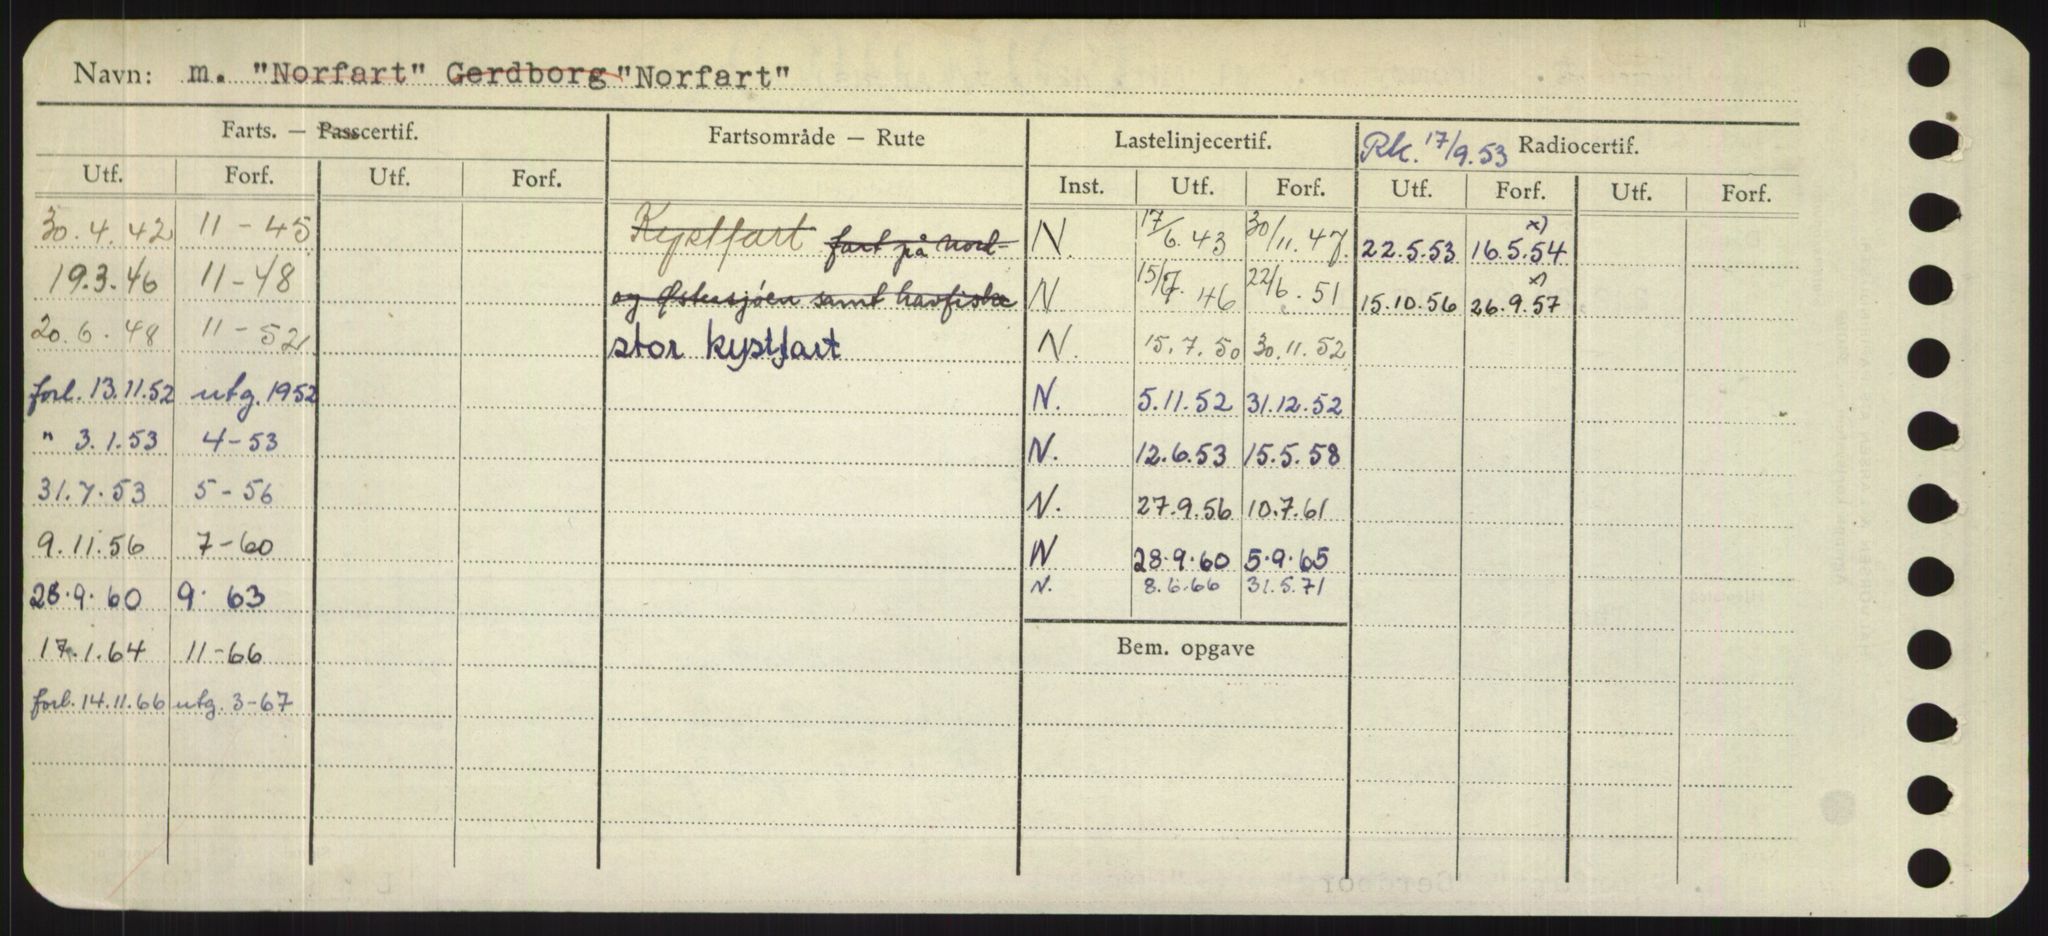 Navn: m. "Norfart" Gerdborg "Norfart"
Farts. — Passcertif. Fartsområde — Rute Lastelinjecertif. Rk. 17/9.53 Radiocertif.
Utf. Forf. Utf. Forf. Inst. Utf. Forf. Utf. Forf. Utf. Forf.
30.4.42 11-45 Kystfart fart på nord- N. 17/6.43 30/11.47 22.5.53 16.5.54 x)
19.3.46 11-48 og Østersjøen samt havfiske N 15/7.46 22/6.51 15.10.56 26.9.57 x)
20.6.48 11-52 stor kystfart N. 15.7.50 30.11.52
forl. 13.11.52 utg. 1952 N. 5.11.52 31.12.52
" 3.1.53 4-53 N. 12.6.53 15.5.58
31.7.53 5-56 N. 27.9.56 10.7.61
9.11.56 7-60 N 28.9.60 5.9.65
28.9.60 9. 63 N. 8.6.66 31.5.71
17.1.64 11-66 Bem. opgave
forl. 14.11.66 utg. 3-67